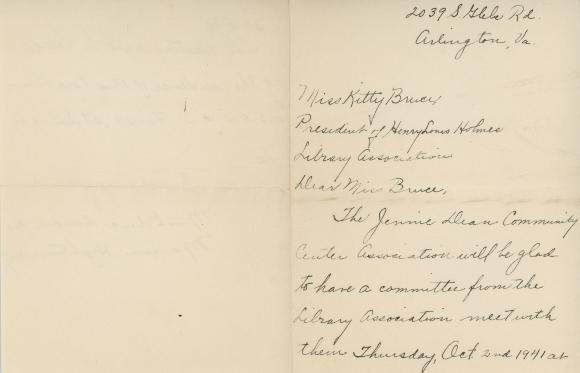 2039 S. Glebe Rd.
Arlington, Va.
Miss Kitty Bruce,
President of Henry Louis Holmes
Library Association
Dear Miss Bruce,
The Jennie Dean Community
Center Association will be glad
to have a committee from the
Library Association meet with
them Thursday, Oct. 2nd 1941 at